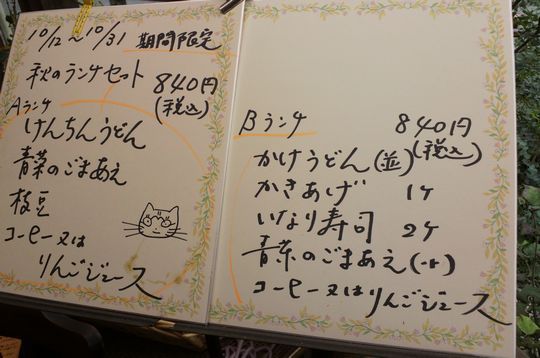 10/12～10/31 期間限定
秋のランチセット 840円
(税込)
Aランチ
けんちんうどん
青菜のごまあえ
枝豆
コーヒー又は
りんごジュース
Bランチ 840円
(税込)
かけうどん(並)
かきあげ 1ケ
いなり寿司 2ケ
青菜のごまあえ(小)
コーヒー又はりんごジュース